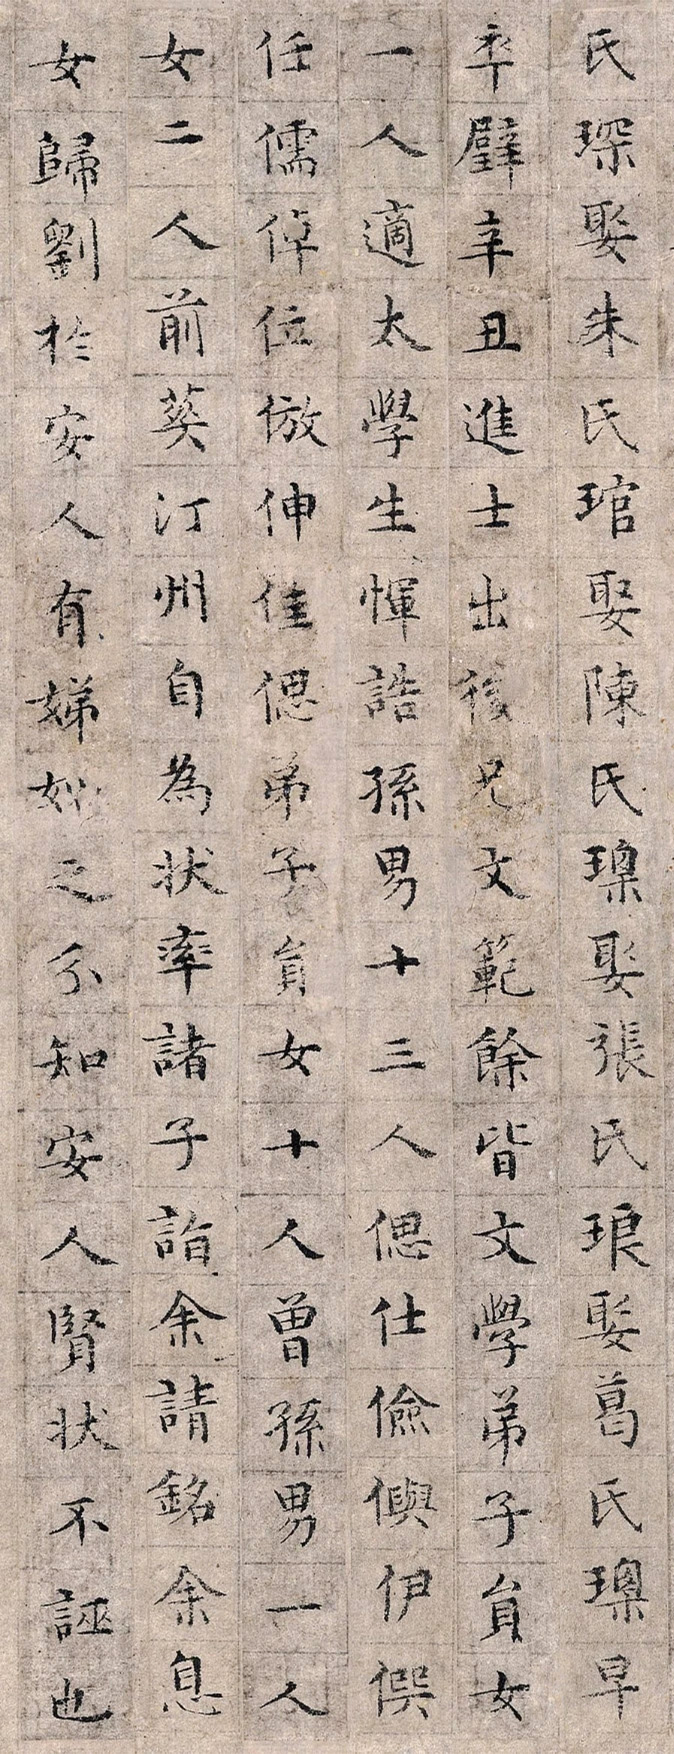 氏琛娶朱氏琯娶陳氏璟娶張氏琅娶葛氏璟早
卒璧辛丑進士出後兄文範餘皆文學弟子員女
一人適太學生惲誥孫男十三人偲仕儉僎伊僎
任儒倬位倣伸佳偲弟子員女十人曾孫男一人
女二人前葵汀州自為狀率諸子詣余請銘余息
女歸劉於安人有娣姒之分知安人賢狀不誣也